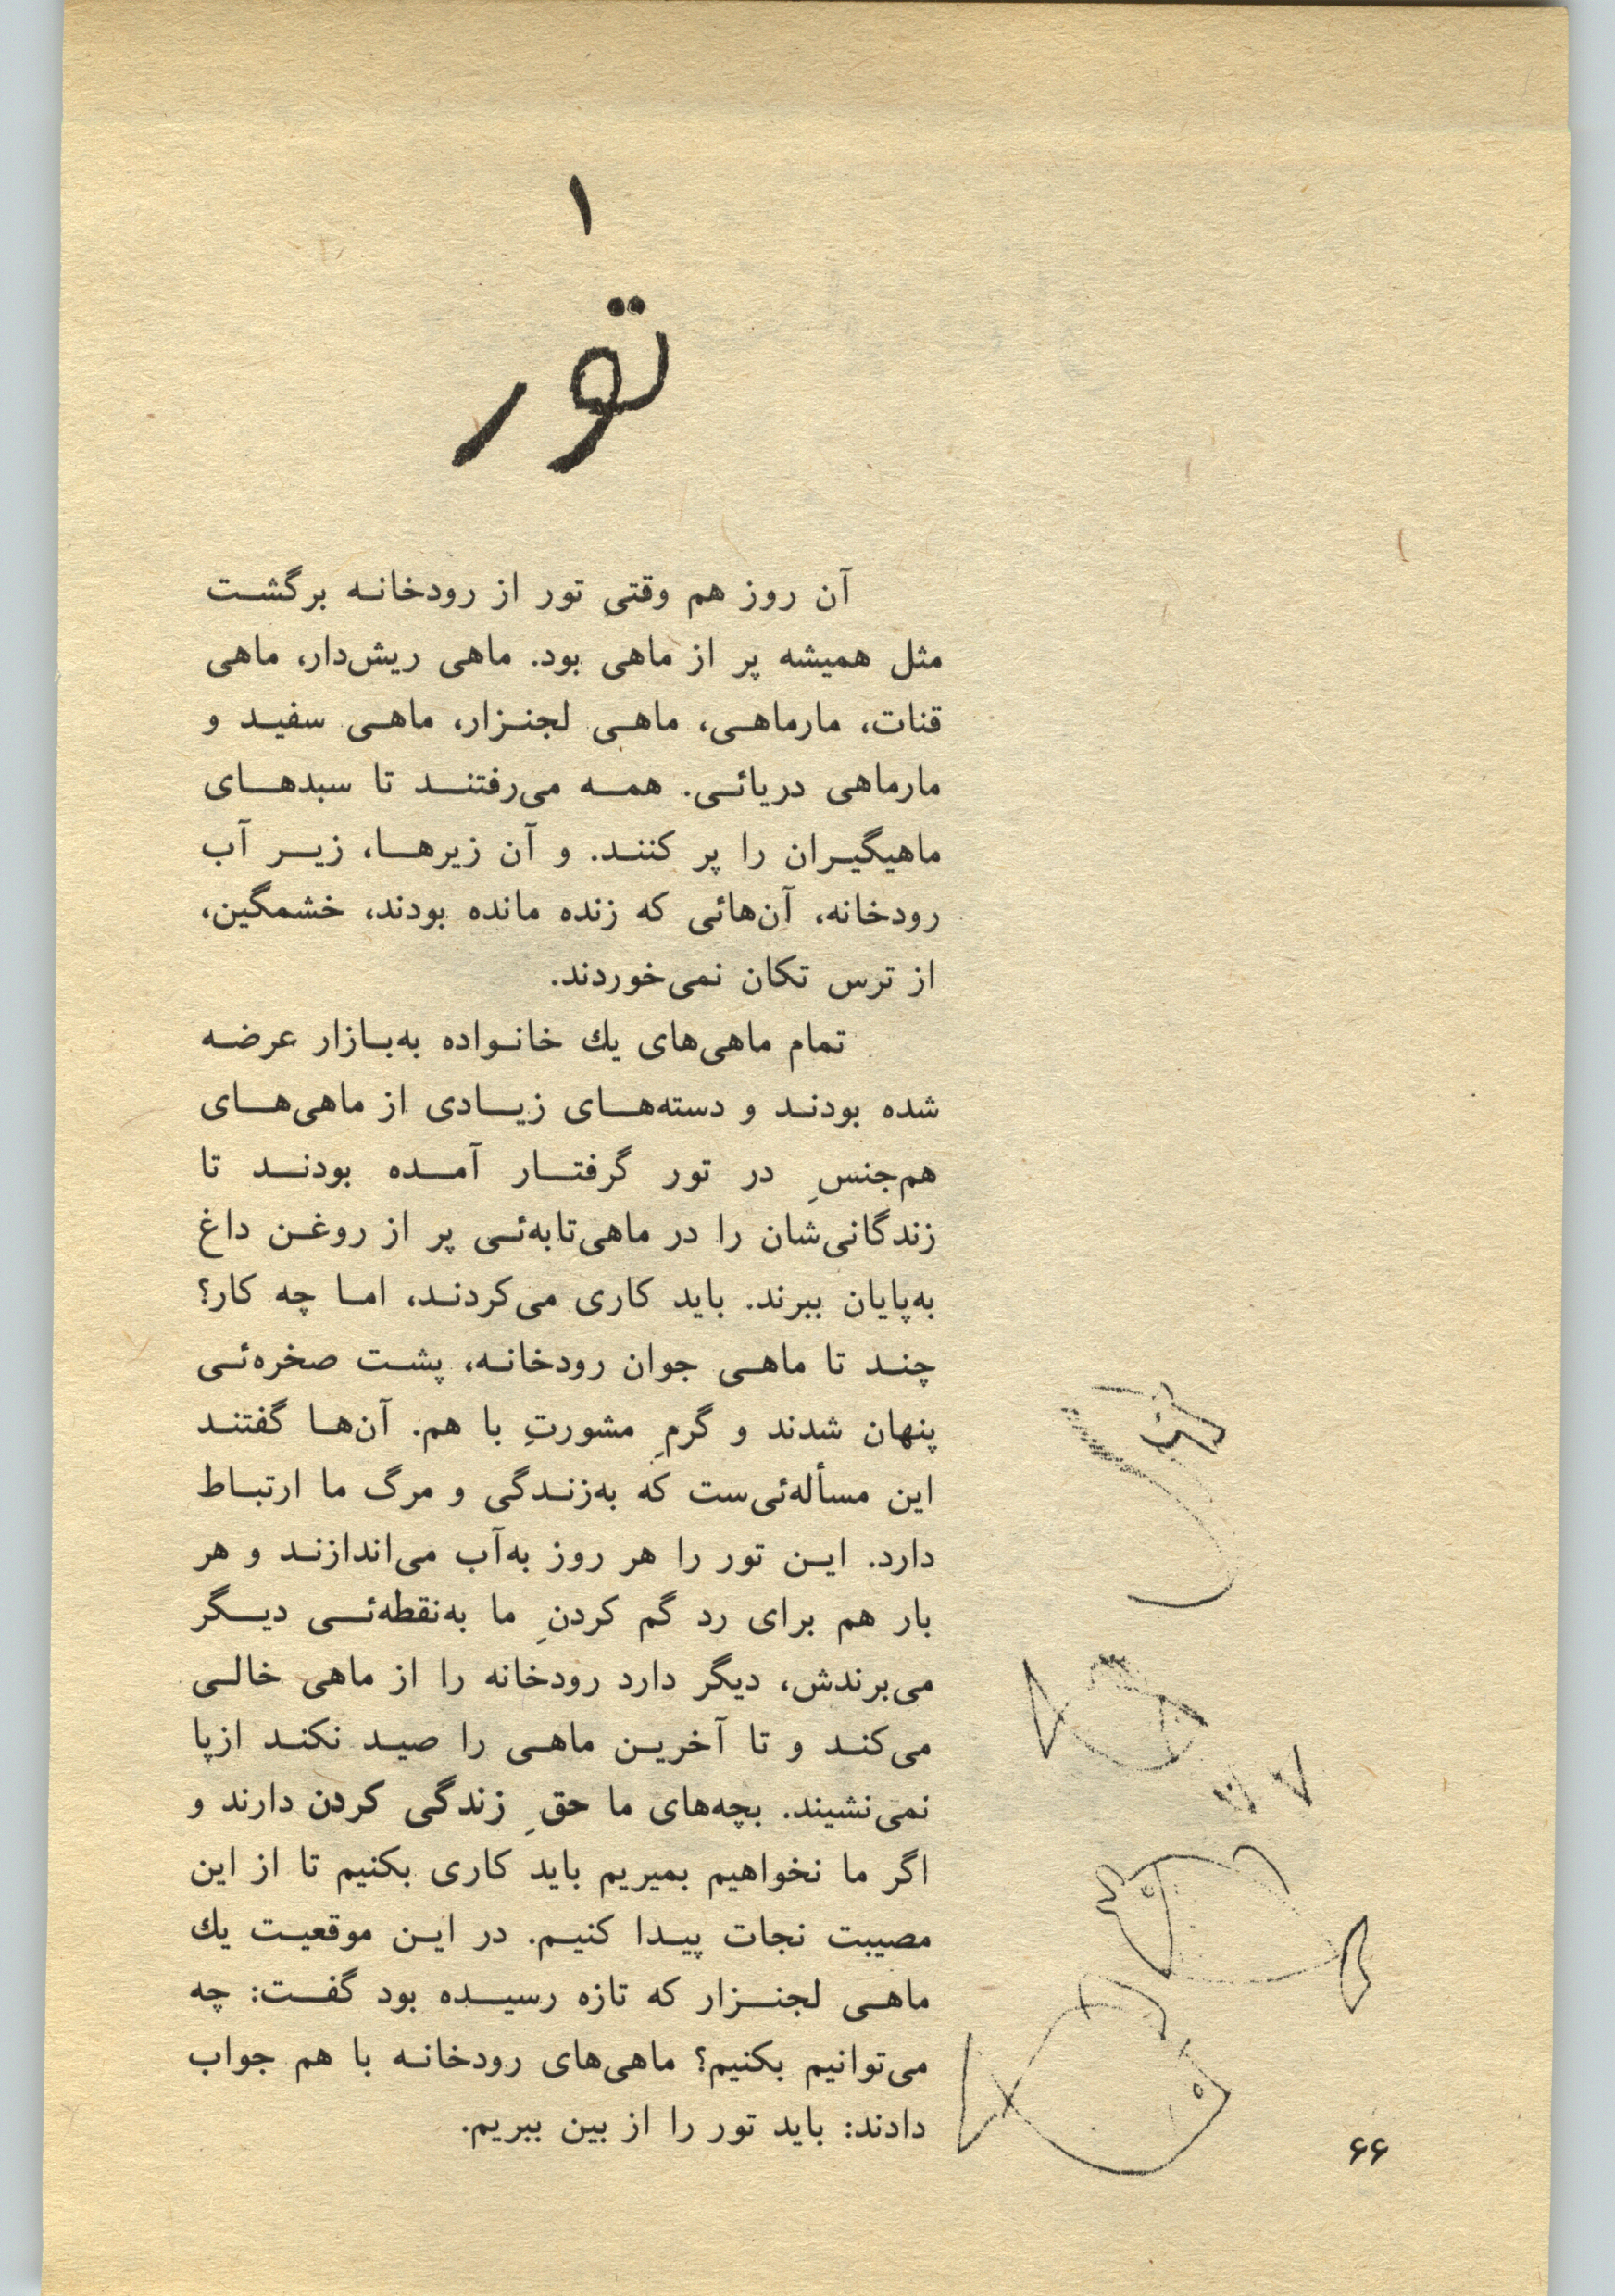 ۱
تور
آن روز هم وقتي تور از رودخانه برگشت
مثل همیشه پر از ماهی بود. ماهی ریش‌دار، ماهی
قنات، مارماهی، ماهی لجنزار، ماهی سفید و
مارماهی دریائی. همه می‌رفتند تا سبدهای
ماهیگیران را پر کنند. و آن زیرها، زیر آب
رودخانه، آن‌هائی که زنده مانده بودند، خشمگین،
از ترس تکان نمی‌خوردند.
تمام ماهی‌های یك خانواده به‌بازار عرضه
شده بودند و دسته‌های زیادی از ماهی‌های
هم‌جنسِ در تور گرفتار آمده بودند تا
زندگانی‌شان را در ماهی‌تابه‌ئی پر از روغن داغ
به‌پایان ببرند. باید کاری می‌کردند، اما چه کار؟
چند تا ماهی جوان رودخانه، پشت صخره‌ئی
پنهان شدند و گرمِ مشورتِ با هم. آن‌ها گفتند
این مسأله‌ئی‌ست که به‌زندگی و مرگ ما ارتباط
دارد. این تور را هر روز به‌آب می‌اندازند و هر
بار هم برای رد گم کردنِ ما به‌نقطه‌ئی دیگر
می‌برندش، دیگر دارد رودخانه را از ماهی خالی
می‌کند و تا آخرین ماهی را صید نکند ازپا
نمی‌نشیند. بچه‌های ما حقِ زندگی کردن دارند و
اگر ما نخواهیم بمیریم باید کاری بکنیم تا از این
مصیبت نجات پیدا کنیم. در این موقعیت یك
ماهی لجنزار که تازه رسیده بود گفت: چه
می‌توانیم بکنیم؟ ماهی‌های رودخانه با هم جواب
دادند: باید تور را از بین ببریم.
۶۶